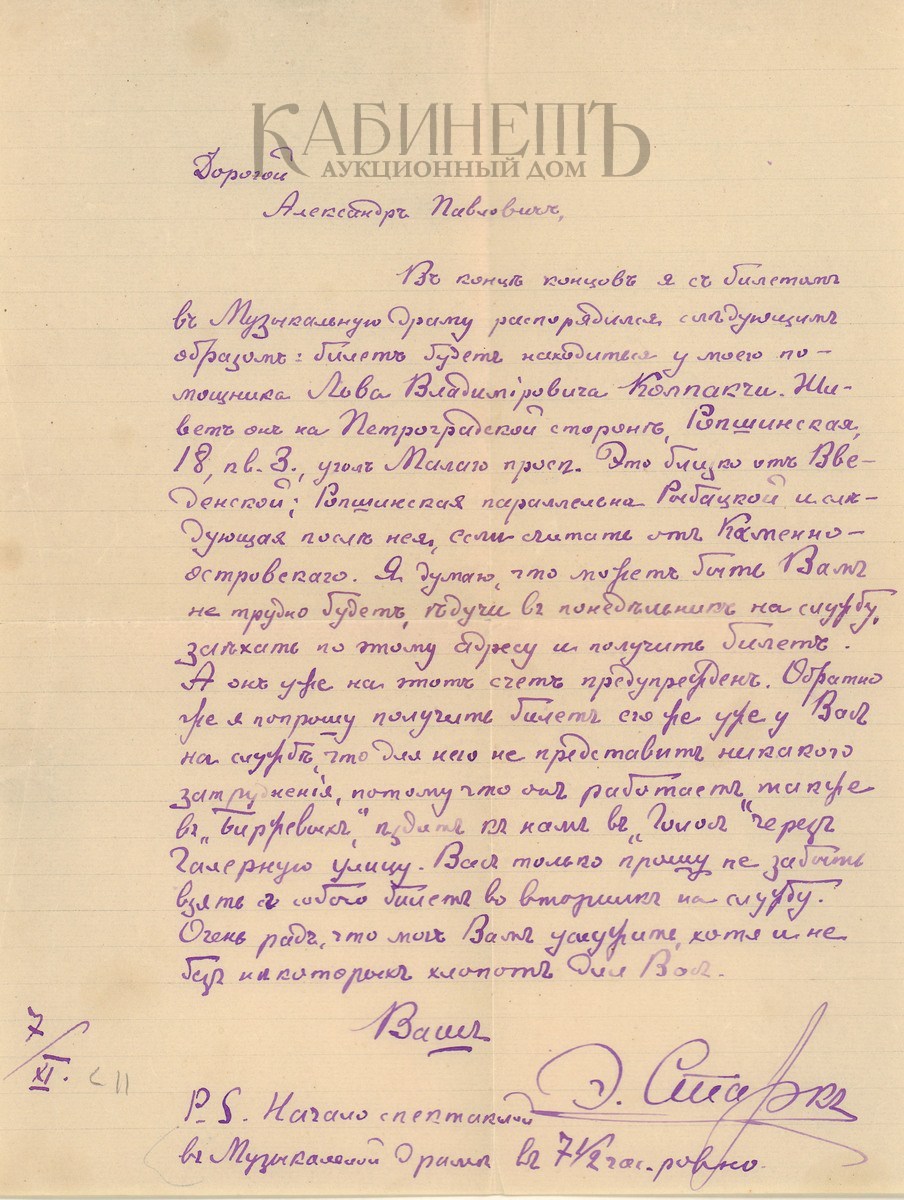 КАБИНЕТЪ
АУКЦИОННЫЙ ДОМ
Дорогой
Александръ Павловичъ,
Въ концѣ концовъ я съ билетомъ
въ Музыкальную драму распорядился слѣдующимъ
образомъ: билетъ будетъ находиться у моего по-
мощника Льва Владимiровича Колпакчи. Жи-
ветъ онъ на Петроградской сторонѣ, Ропшинская,
18, кв. 3., уголъ Малаго просп. Это близко отъ Вве-
денской; Ропшинская параллельна Рыбацкой и слѣ-
дующая послѣ нея, если считать отъ Каменно-
островскаго. Я думаю, что можетъ быть Вамъ
не трудно будетъ, ѣдучи въ понедѣльникъ на службу,
заѣхать по этому адресу и получить билетъ.
А онъ уже на этотъ счетъ предупрежденъ. Обратно
же я попрошу получить билетъ его же уже у Васъ
на службѣ, что для него не представитъ никакого
затрудненія, потому что онъ работаетъ также
въ „Биржевыхъ", ѣздитъ къ намъ въ „Голосъ" черезъ
Галерную улицу. Васъ только прошу не забыть
взять съ собою билетъ во вторникъ на службу.
Очень радъ, что могъ Вамъ услужить, хотя и не
безъ нѣкоторыхъ хлопотъ для Васъ.
Вашъ
Э. Старкъ
7/XI.
P. S. Начало спектаклей
въ Музыкальной Драмѣ въ 7 1/2 час. ровно.